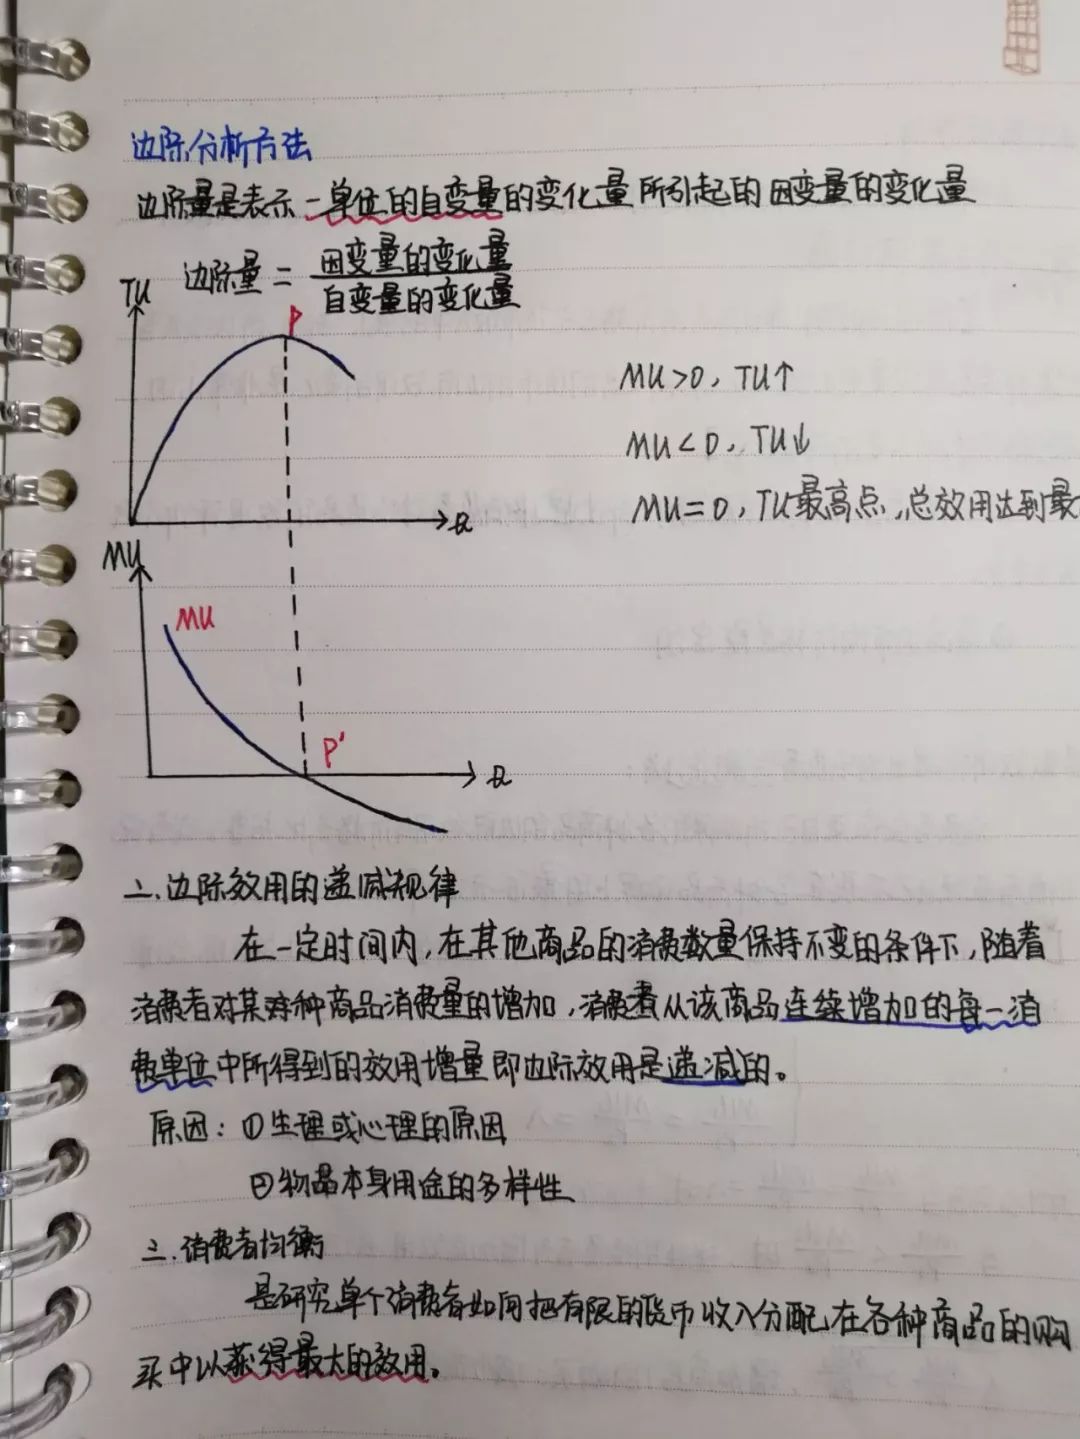 边际分析方法
边际量是表示一单位的自变量的变化量所引起的因变量的变化量
边际量 = 因变量的变化量
自变量的变化量
TU
P
MU>0, TU↑
MU<0, TU↓
MU=0, TU最高点,总效用达到最
Q
MU
MU
P'
Q
二.边际效用的递减规律
在一定时间内,在其他商品的消费数量保持不变的条件下,随着
消费者对某种商品消费量的增加,消费者从该商品连续增加的每一消
费单位中所得到的效用增量即边际效用是递减的。
原因:①生理或心理的原因
②物品本身用途的多样性
三.消费者均衡
是研究单个消费者如何把有限的货币收入分配在各种商品的购
买中以获得最大的效用。